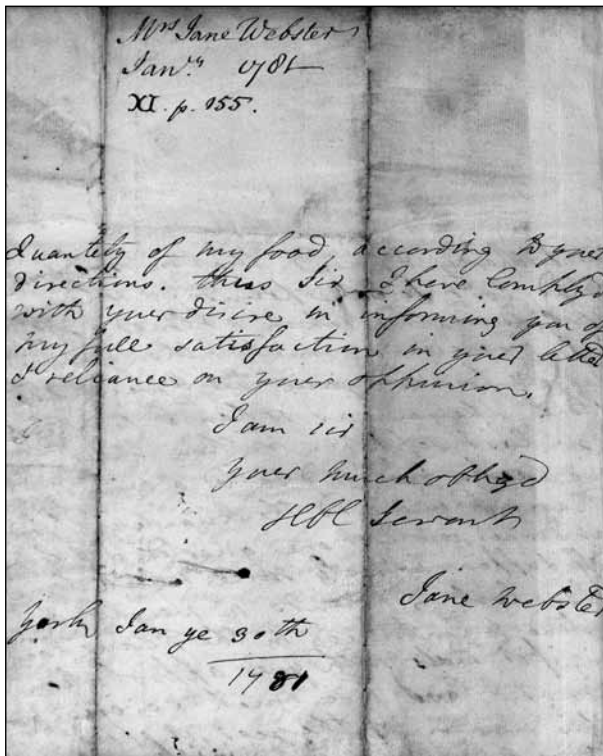 Mrs Jane Webster
Jany. 1781
XI. p. 155.
Quantety of my food according to yuer
directions. thus Sir I have Complyd
with yuer disire in informing you of
my full satisfaction in yuer letter
& reliance on yuer oppinion.
I am sir
yuer much obligd
Hble Servant
Jane Webster
York Jan ye 30th
1781